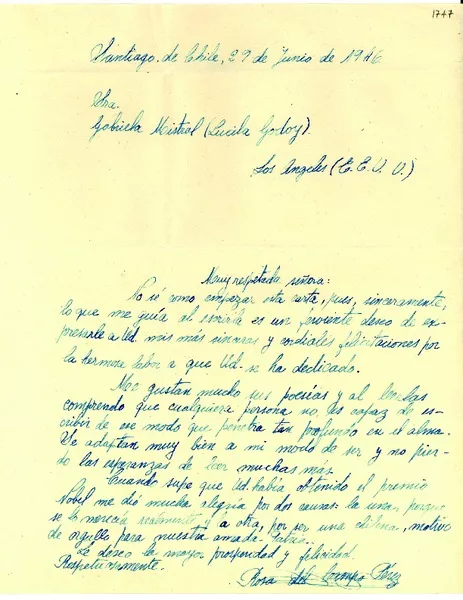 1747
Santiago de Chile, 29 de Junio de 1946
Sra.
Gabriela Mistral (Lucila Godoy).
Los Angeles (E.E.U.U.)
Muy respetada señora:
No sé como empezar esta carta, pues, sinceramente,
lo que me guía al escribirla es un ferviente deseo de ex-
presarle a Ud. mis más sinceras y cordiales felicitaciones por
la hermosa labor a que Ud. se ha dedicado.
Me gustan mucho sus poesías y al leerlas
comprendo que cualquiera persona no es capaz de es-
cribir de ese modo que penetra tan profundo en el alma.
Se adaptan muy bien a mi modo de ser y no pier-
do las esperanzas de leer muchas más.
Cuando supe que Ud. había obtenido el premio
Nobel me dió mucha alegría por dos causas: la una, porque
se lo merecía realmente y la otra, por ser una chilena, motivo
de orgullo para nuestra amada
Le deseo la mayor prosperidad y felicidad.
Respetuosamente.
Rosa del Campo Pérez